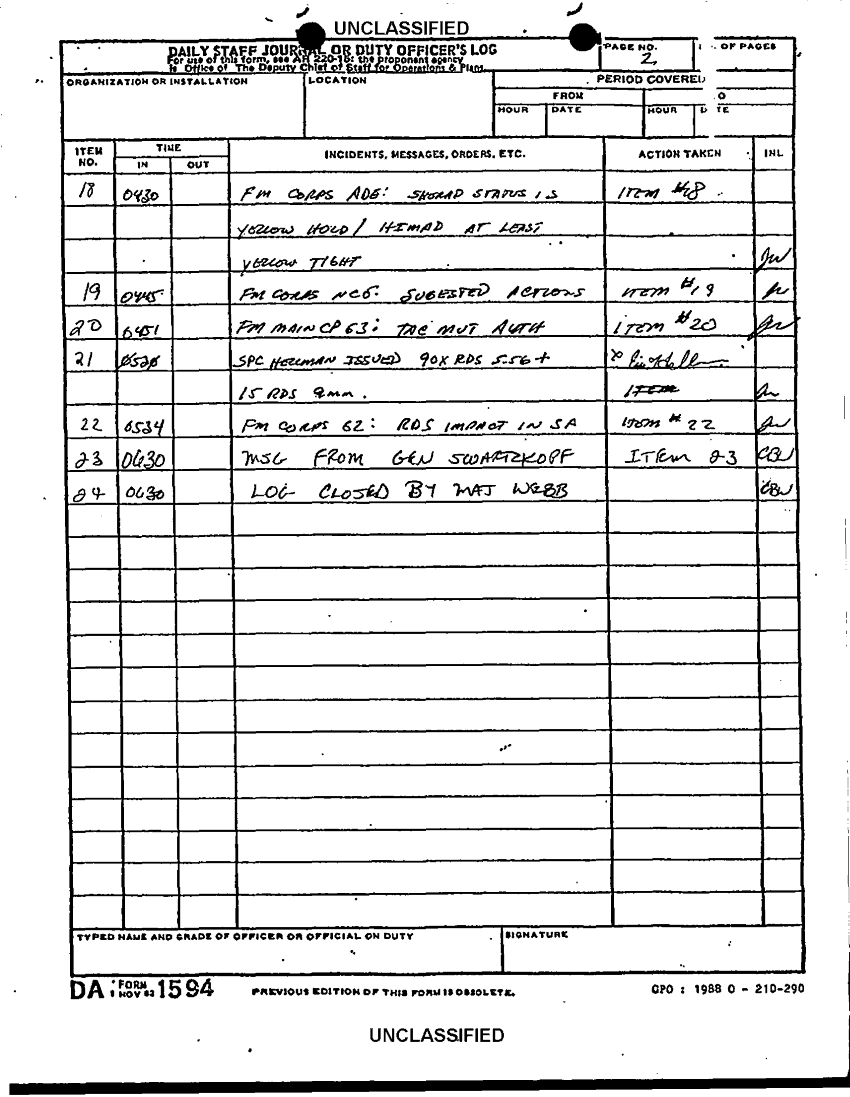 UNCLASSIFIED
DAILY STAFF JOURNAL OR DUTY OFFICER'S LOG
For use of this form, see AR 220-15; the proponent agency
is Office of The Deputy Chief of Staff for Operations & Plans
PAGE NO.
2
OF PAGES
ORGANIZATION OR INSTALLATION
LOCATION
PERIOD COVERED
FROM
HOUR DATE HOUR
ITEM NO. TIME IN OUT INCIDENTS, MESSAGES, ORDERS, ETC. ACTION TAKEN INL
18 0430 FM CORPS ADE: SHORAD STATUS IS ITEM #18
YELLOW HOLD / HIMAD AT LEAST
YELLOW TIGHT
19 0445 FM CORPS NCS: SUGESTED ACTIONS ITEM #19
20 0451 FM MAIN CP G3: TAC MVT AUTH ITEM #20
21 0520 SPC HELLMAN ISSUED 90X RDS 5.56 +
15 RDS 9mm. ITEM
22 0534 FM CORPS G2: RDS IMPACT IN SA ITEM # 22
23 0630 MSG FROM GEN SWARTZKOPF ITEM 23 CBW
24 0630 LOG CLOSED BY MAJ WEBB CBW
TYPED NAME AND GRADE OF OFFICER OR OFFICIAL ON DUTY
SIGNATURE
DA FORM 1594
1 NOV 62
PREVIOUS EDITION OF THIS FORM IS OBSOLETE.
GPO : 1988 O - 210-290
UNCLASSIFIED